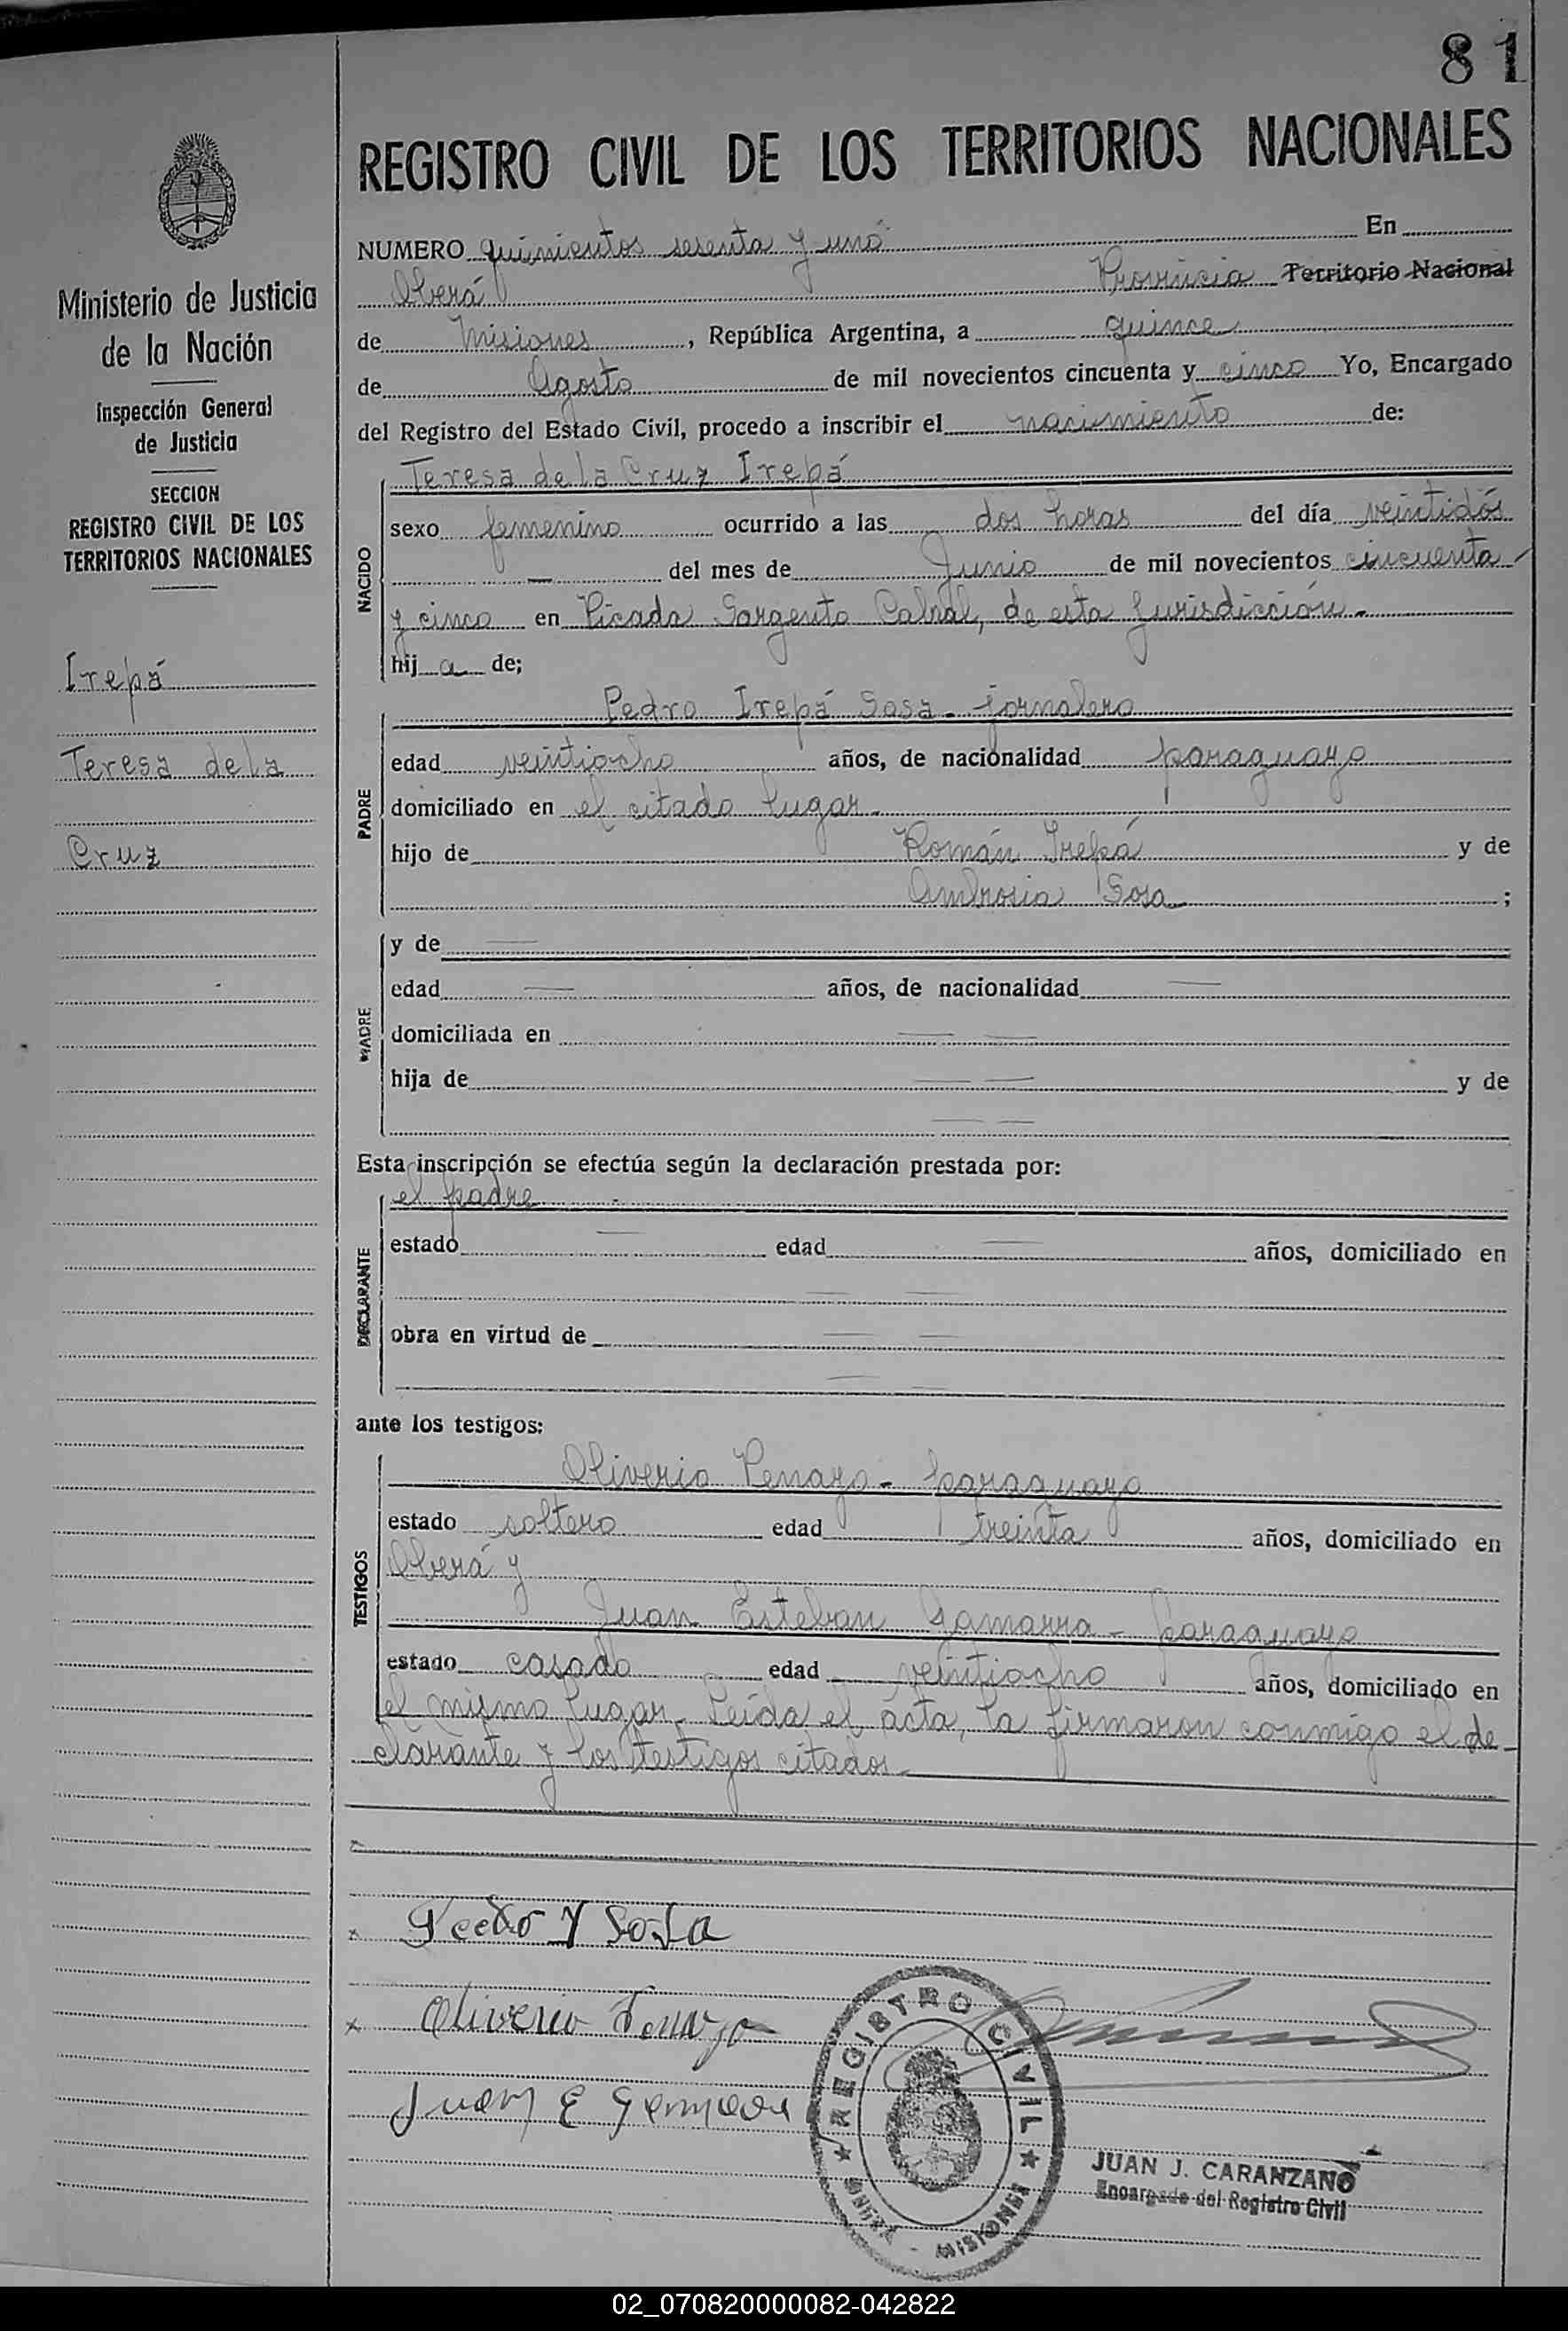 81
REGISTRO CIVIL DE LOS TERRITORIOS NACIONALES
Ministerio de Justicia
de la Nación
Inspección General
de Justicia
SECCION
REGISTRO CIVIL DE LOS
TERRITORIOS NACIONALES
Irepá
Teresa de la
Cruz
NUMERO quinientos sesenta y uno En
Oberá Provincia Territorio Nacional
de Misiones, República Argentina, a quince
de Agosto de mil novecientos cincuenta y cinco Yo, Encargado
del Registro del Estado Civil, procedo a inscribir el nacimiento de:
NACIDO
Teresa de la Cruz Irepá
sexo femenino ocurrido a las dos horas del día veintidós
— del mes de Junio de mil novecientos cincuenta
y cinco en Picada Sargento Cabral, de esta jurisdicción.-
hija de;
PADRE
Pedro Irepá Sosa - jornalero
edad veintiocho años, de nacionalidad paraguayo
domiciliado en el citado lugar.-
hijo de Román Irepá y de
Ambrosia Sosa ;
MADRE
y de —
edad — años, de nacionalidad —
domiciliada en — —
hija de — — y de
— —
Esta inscripción se efectúa según la declaración prestada por:
DECLARANTE
el padre
estado — edad — años, domiciliado en
— —
obra en virtud de — —
— —
ante los testigos:
TESTIGOS
Oliverio Penayo - paraguayo
estado soltero edad treinta años, domiciliado en
Oberá y
Juan Esteban Gamarra - paraguayo
estado casado edad veintiocho años, domiciliado en
el mismo lugar.- Leída el acta, la firmaron conmigo el de-
clarante y los testigos citados.-
x Pedro Y Sosa
x Oliverio Penayo
Juan E Gamarra
REGISTRO CIVIL
OBERÁ - MISIONES
JUAN J. CARANZANO
Encargado del Registro Civil
02_070820000082-042822